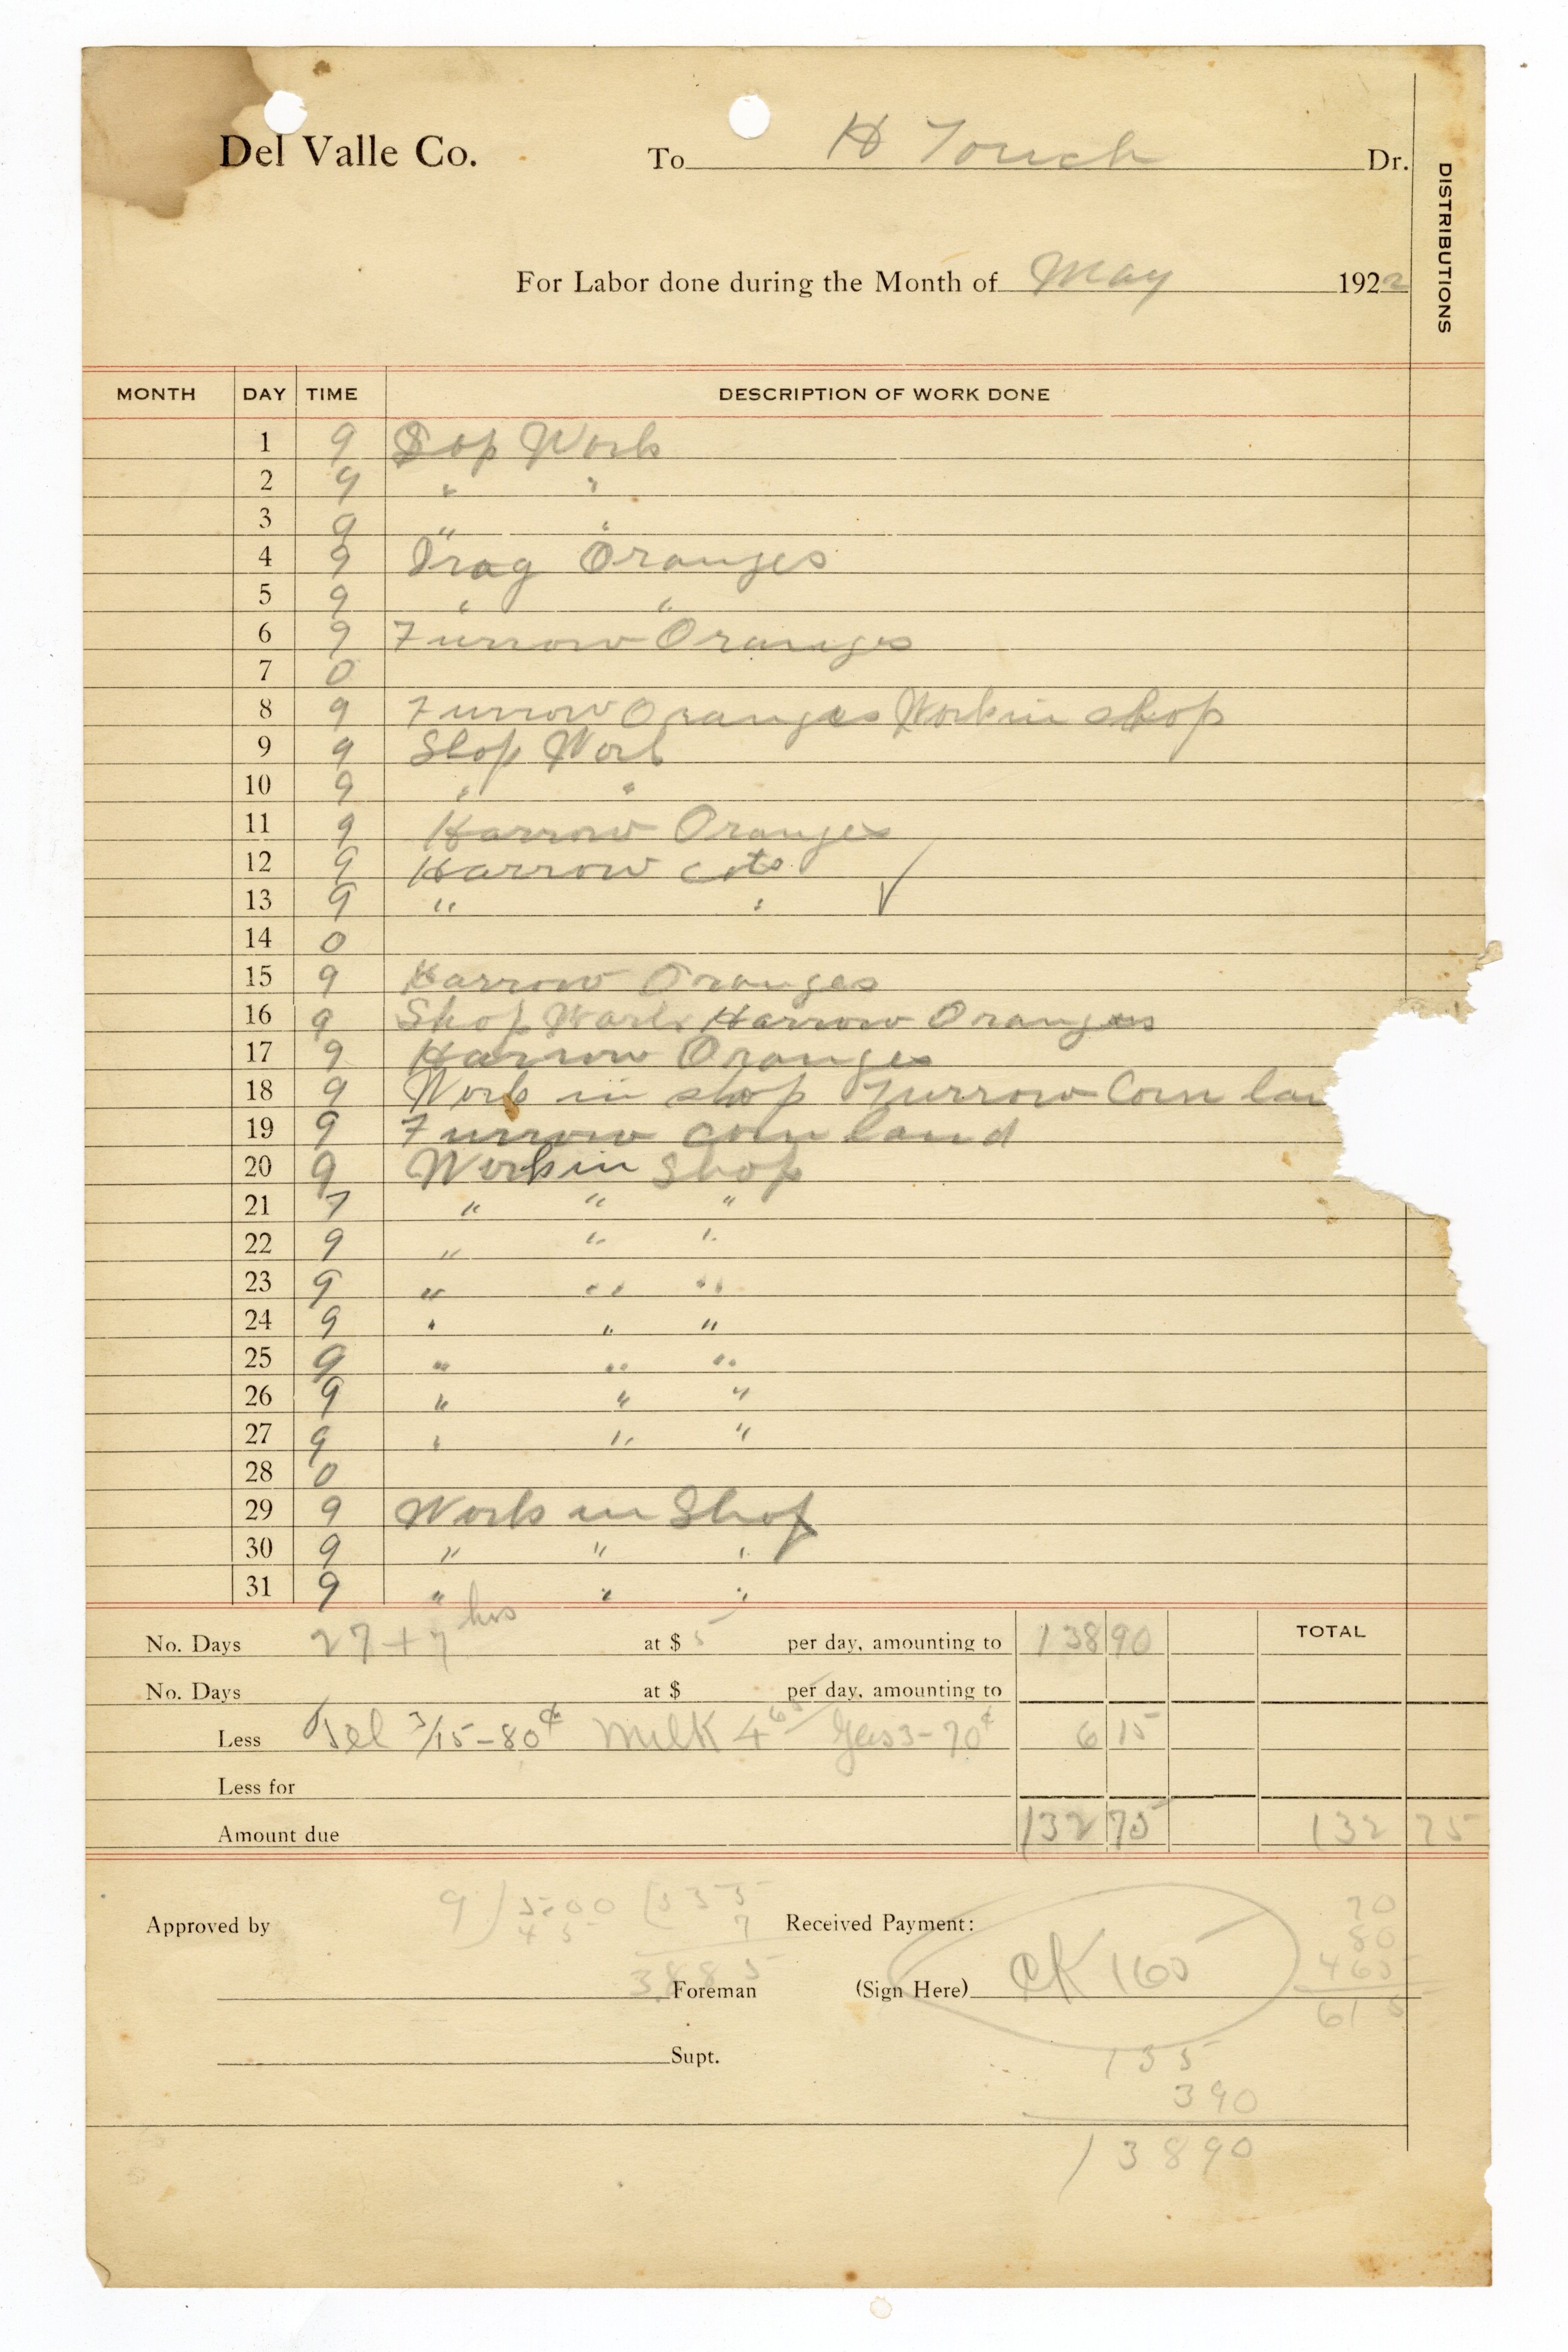 Del Valle Co. To H Touch Dr.
DISTRIBUTIONS
For Labor done during the Month of May 1922
MONTH DAY TIME DESCRIPTION OF WORK DONE
1 9 Sop Work
2 9 " "
3 9 " "
4 9 Drag Oranges
5 9 " "
6 9 Furrow Oranges
7 0
8 9 Furrow Oranges Work in shop
9 9 Shop Work
10 9 " "
11 9 Harrow Oranges
12 9 Harrow cots
13 9 " " ✓
14 0
15 9 Harrow Oranges
16 9 Shop Work Harrow Oranges
17 9 Harrow Oranges
18 9 Work in shop Furrow Corn lan
19 9 Furrow corn land
20 9 Work in Shop
21 7 " " "
22 9 " " "
23 9 " " "
24 9 " " "
25 9 " " "
26 9 " " "
27 9 " " "
28 0
29 9 Work in Shop
30 9 " " "
31 9 " " "
No. Days 27 + 7 hrs at $ 5 per day, amounting to 138 90 TOTAL
No. Days at $ per day, amounting to
Less Tel 3/15-80¢ Milk 4 65 Gas 3-70¢ 6 15
Less for
Amount due 132 75 132 75
9) 5.00 (555
45 7
3885
Approved by Received Payment:
Foreman (Sign Here) CK 165
Supt.
70
80
465
615
135
390
13890